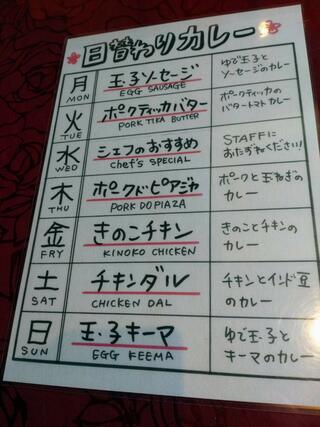 日替わりカレー
月
MON
玉子ソーセージ
EGG SAUSAGE
ゆで玉子と
ソーセージのカレー
火
TUE
ポークティッカバター
PORK TIKA BUTTER
ポークティッカの
バタートマトカレー
水
WED
シェフのおすすめ
chef's SPECIAL
STAFFに
おたずねください!
木
THU
ポークドピアジャ
PORK DOPIAZA
ポークと玉ねぎの
カレー
金
FRY
きのこチキン
KINOKO CHICKEN
きのことチキンの
カレー
土
SAT
チキンダル
CHICKEN DAL
チキンとインド豆
のカレー
日
SUN
玉子キーマ
EGG KEEMA
ゆで玉子と
キーマのカレー